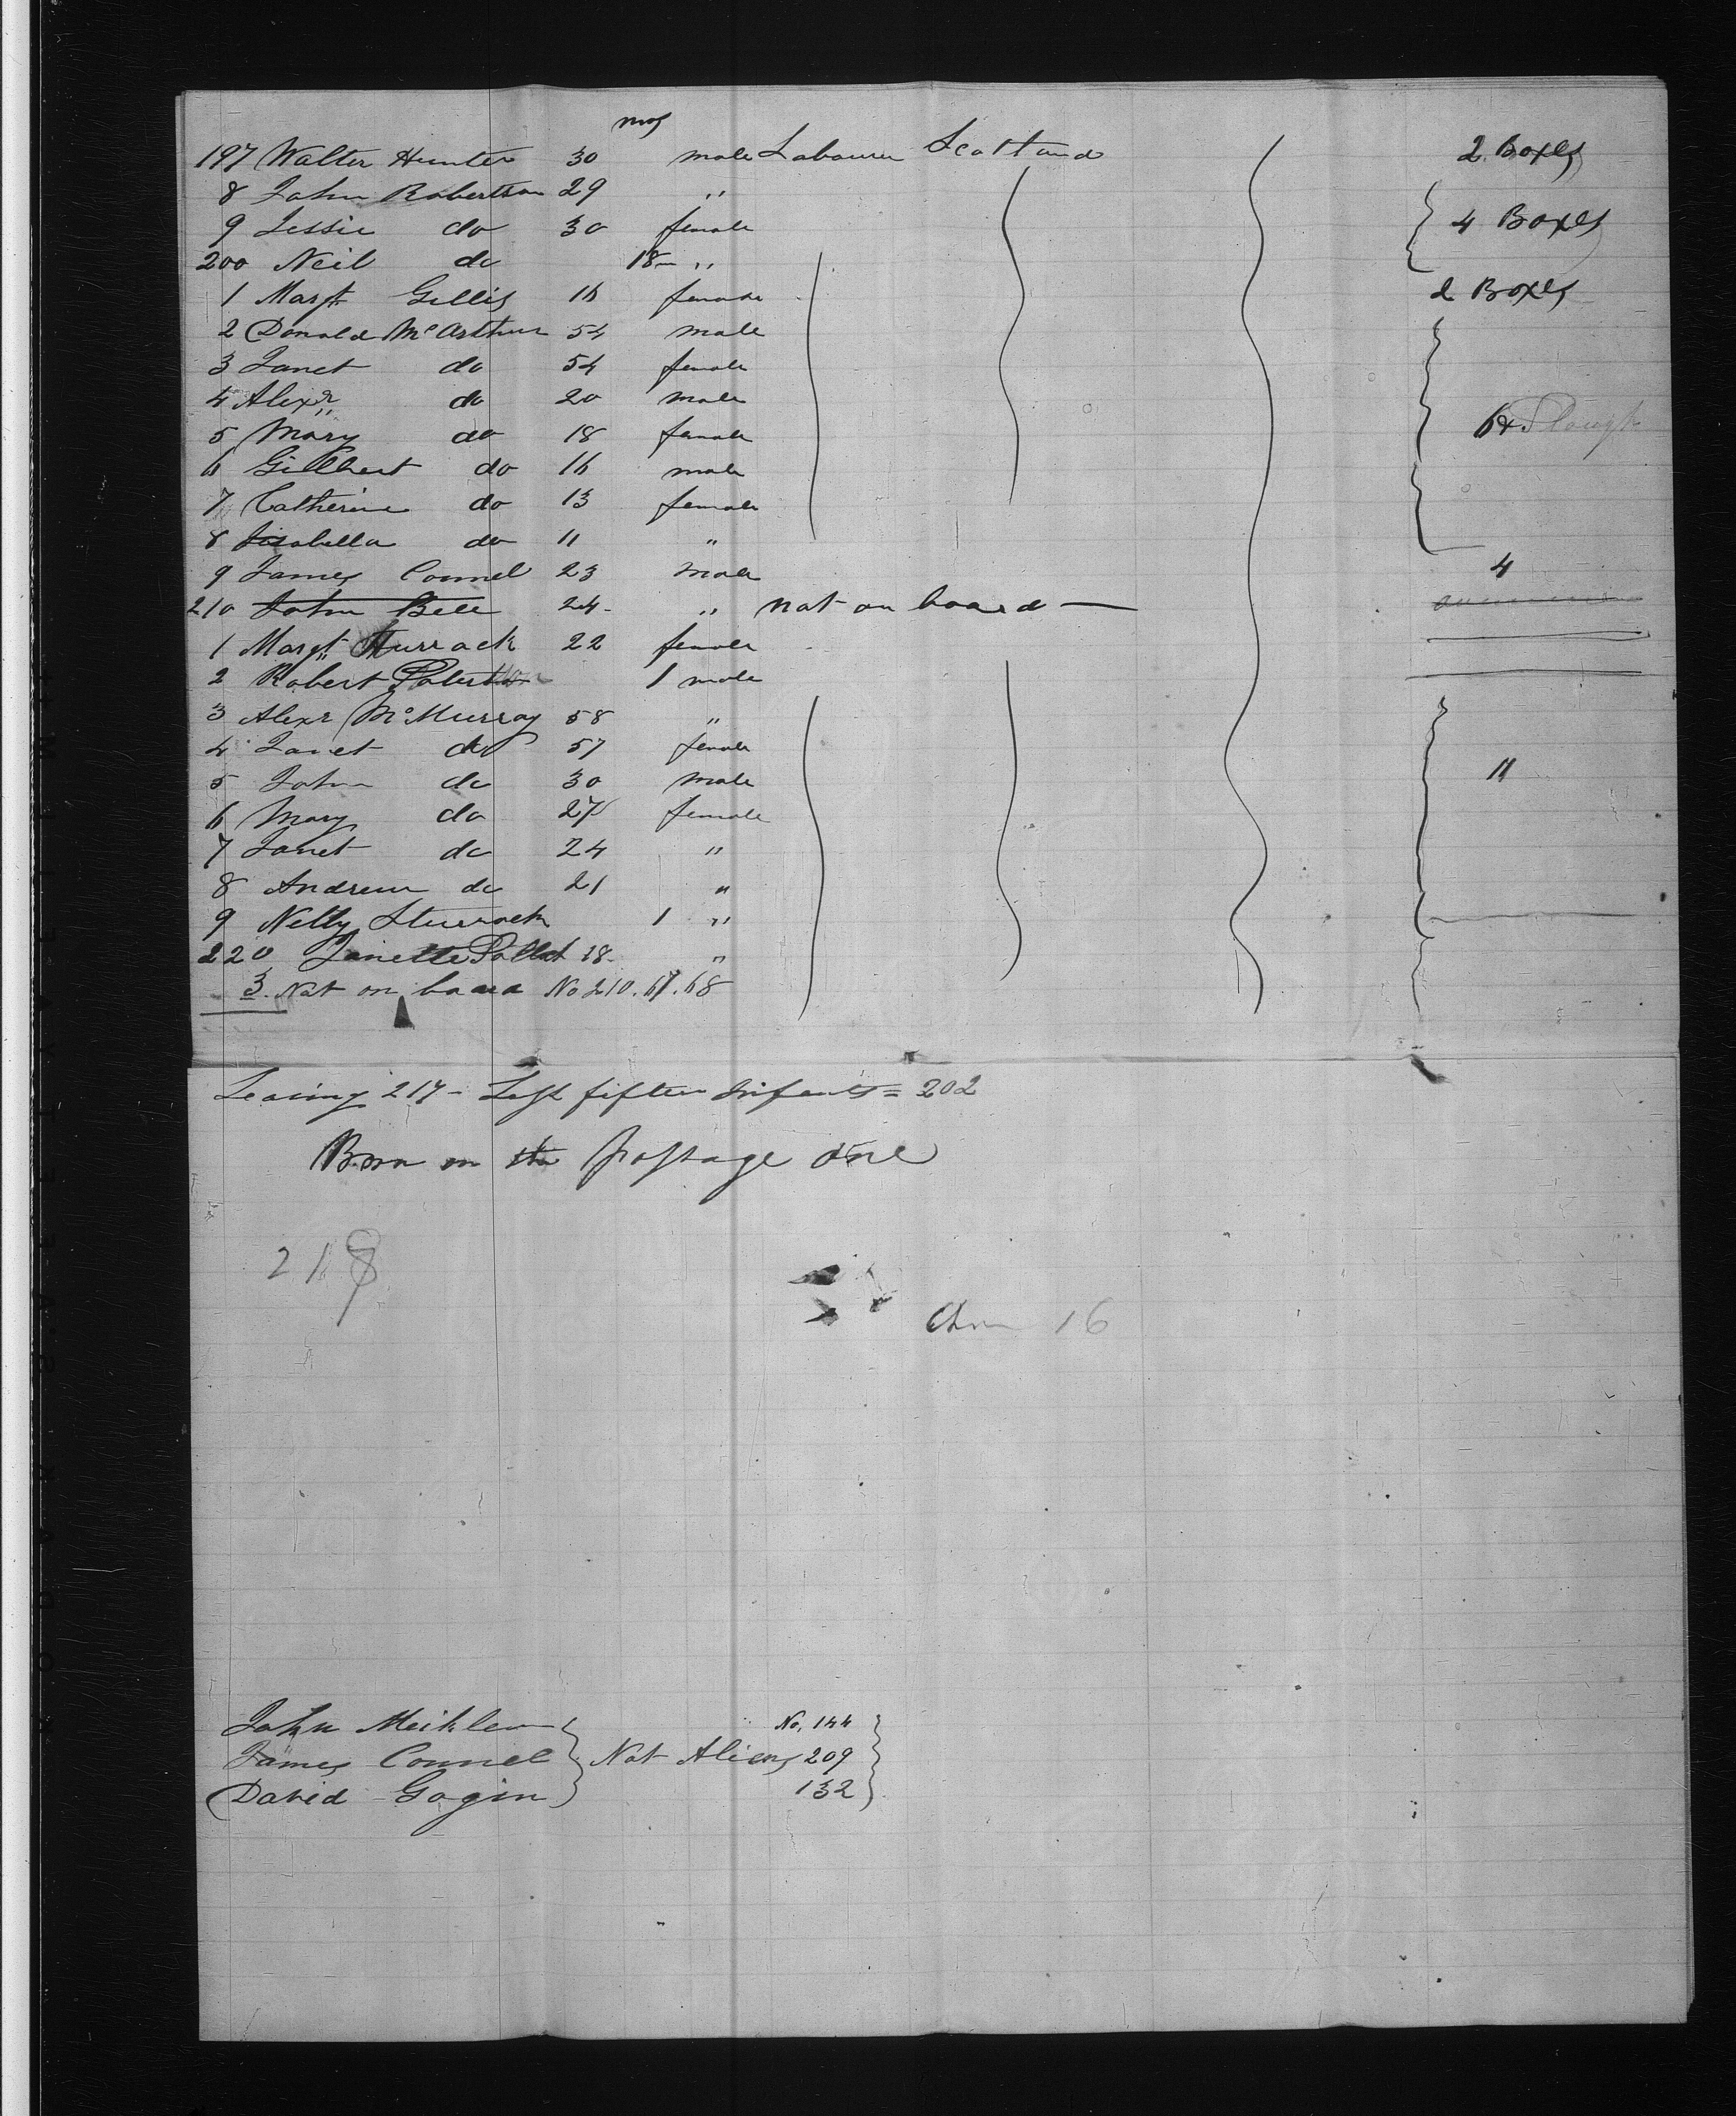 mos
197 Walter Hunter 30 male Labourer Scotland 2 Boxes
8 John Robertson 29 "
9 Jessie do 30 female 4 Boxes
200 Neil do 18 "
1 Margt Gillis 16 female 2 Boxes
2 Donald McArthur 54 male
3 Janet do 54 female
4 Alexr do 20 male
5 Mary do 18 female 6 & Plough
6 Gillbert do 16 male
7 Catherine do 13 female
8 Isabella do 11 "
9 James Connel 23 male 4
210 John Bell 24 " not on board
1 Margt Sturrock 22 female
2 Robert 1 male
3 Alexr McMurray 58 "
4 Janet do 57 female
5 John do 30 male 11
6 Mary do 27 female
7 Janet do 24 "
8 Andrew do 21 "
9 Nelly Sturrock 1 "
220 Janette 18 "
3. Not on board No 210. 67. 68
Leaving 217 - Less fifteen Infants = 202
Born on the passage one
218
16
John Meiklem No. 144
James Connel Not Aliens 209
David Gogin 132